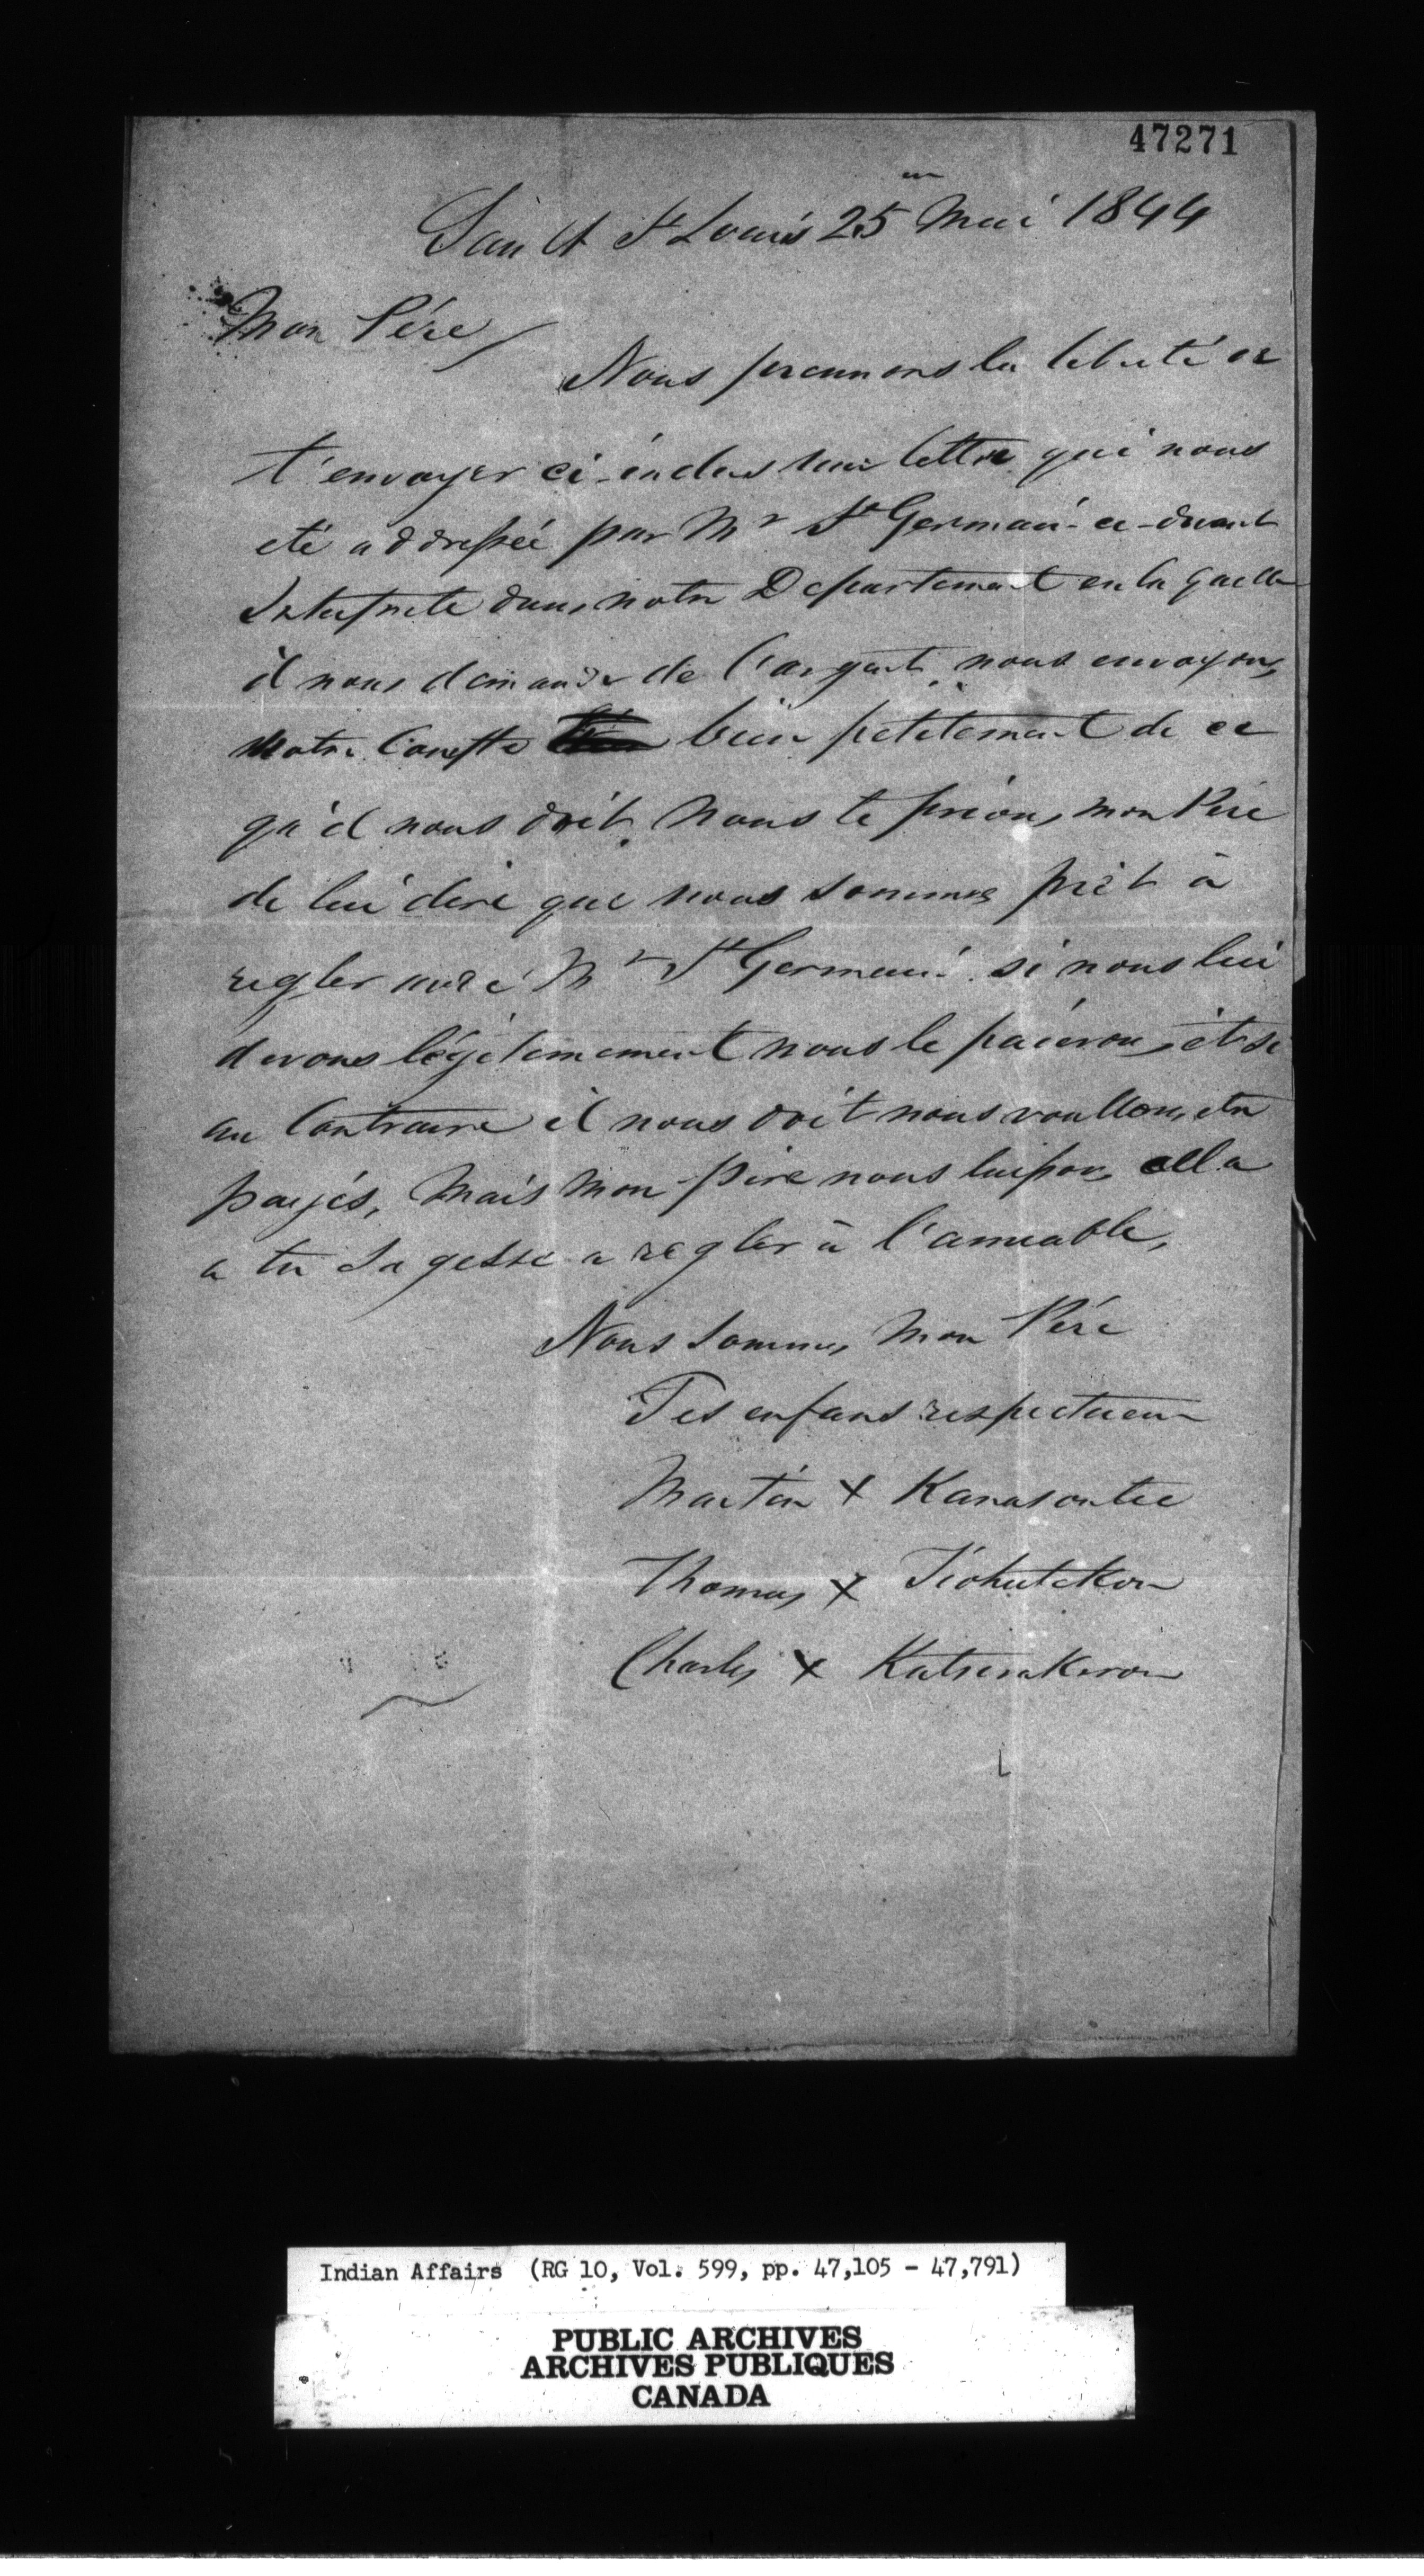 47271
Sault St Louis 25 em Mai 1844
Mon Pére
Nous prennons la liberté de
t'envoyer ci-inclus une lettre qui nous
eté addressée par Mr St Germain ci-devant
Interprete dans notre Departement en la quelle
il nous demande de l'argent, nous envoyons
Notre Compte bien petitement de ce
qu'il nous doit, Nous te prions, mon Pére
de lui dire que nous sommes prèt à
regler avec Mr St Germain si nous lui
devons légitemement nous le paierons, et si
au Contraire il nous doit nous voullons etre
payés, Mais Mon père nous laissons cella
a ta Sagesse a regler à l'amiable,
Nous Sommes Mon Pére
Tes enfans respectueux
Martin X Kanasontie
Thomas X Tiohatekon
Charles X Katsirakeron
Indian Affairs (RG 10, Vol. 599, pp. 47,105 - 47,791)
PUBLIC ARCHIVES
ARCHIVES PUBLIQUES
CANADA